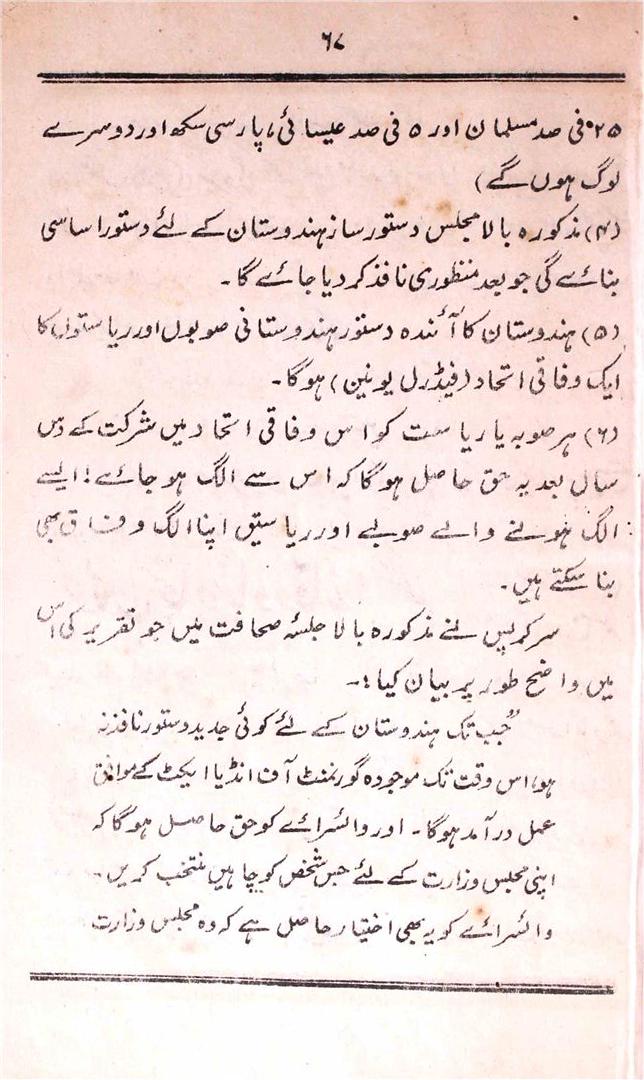 ۶۸
۲۵ فی صد مسلمان اور ۵ فی صد عیسائی، پارسی سکھ اور دوسرے
لوگ ہوں گے)
(۴) مذکورہ بالا مجلس دستور ساز ہندوستان کے لئے دستور اساسی
بنائے گی جو بعد منظوری نافذ کر دیا جائے گا۔
(۵) ہندوستان کا آئندہ دستور ہندوستانی صوبوں اور ریاستوں کا
ایک وفاقی اتحاد (فیڈرل یونین) ہوگا۔
(۶) ہر صوبہ یا ریاست کو اس وفاقی اتحاد میں شرکت کے دس
سال بعد یہ حق حاصل ہوگا کہ اس سے الگ ہو جائے! ایسے
الگ ہونے والے صوبے اور ریاستیں اپنا الگ وفاق بھی
بنا سکتے ہیں۔
سر کرپس نے مذکورہ بالا جلسۂ صحافت میں جو تقریر کی اس
میں واضح طور پر بیان کیا:۔
"جب تک ہندوستان کے لئے کوئی جدید دستور نافذ نہ
ہو، اس وقت تک موجودہ گورنمنٹ آف انڈیا ایکٹ کے موافق
عمل درآمد ہوگا۔ اور وائسرائے کو حق حاصل ہوگا کہ
اپنی مجلس وزارت کے لئے جس شخص کو چاہیں منتخب کریں۔
وائسرائے کو یہ بھی اختیار حاصل ہے کہ وہ مجلس وزارت